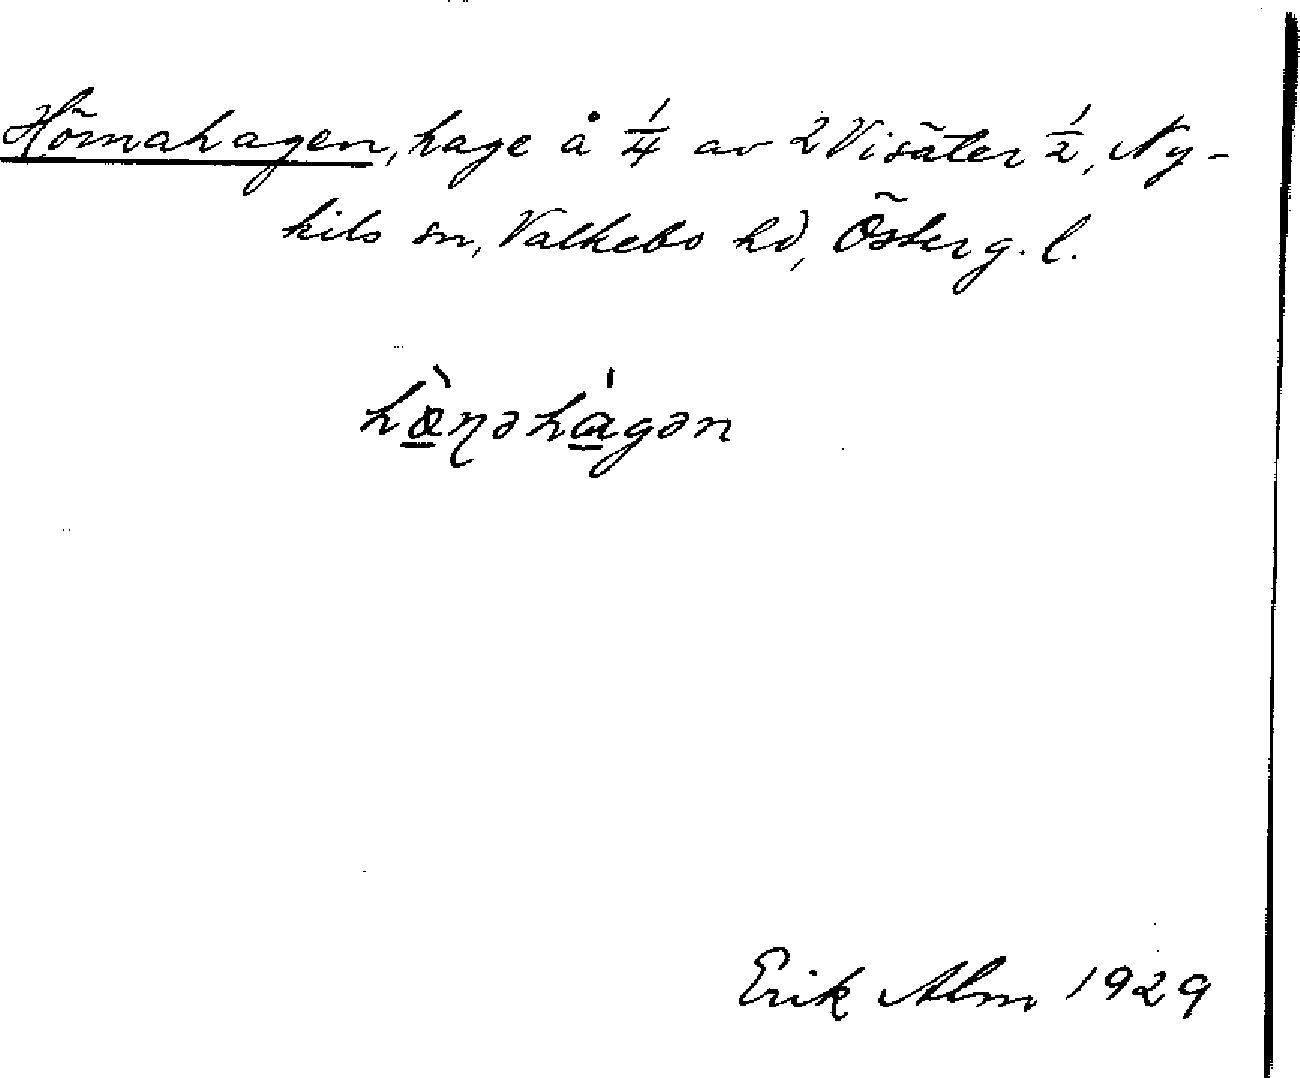 Hörnahagen, hage å 1/4 av 2 Visäter 1/2, Ny-
kils sn, Valkebo hd, Österg. l.
hœ̠̀ɳəhά̠gən
Erik Alm 1929